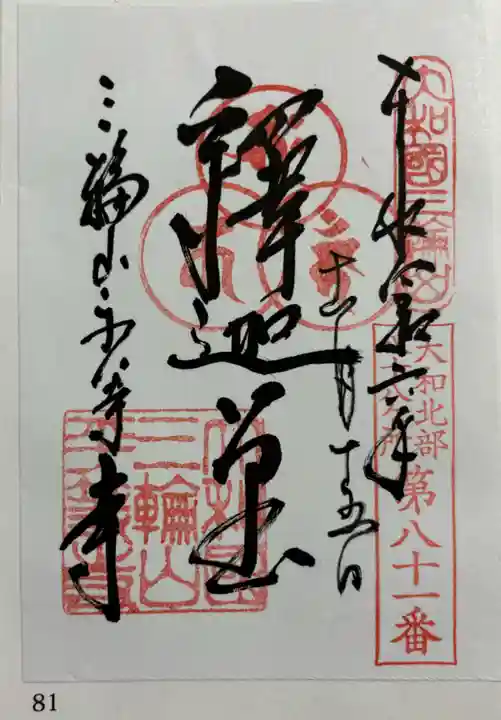 大和國三輪山
大和北部
八十八ヶ所
第八十一番
令和六年
月十五日
釋迦
三輪山平等寺
三輪山
81